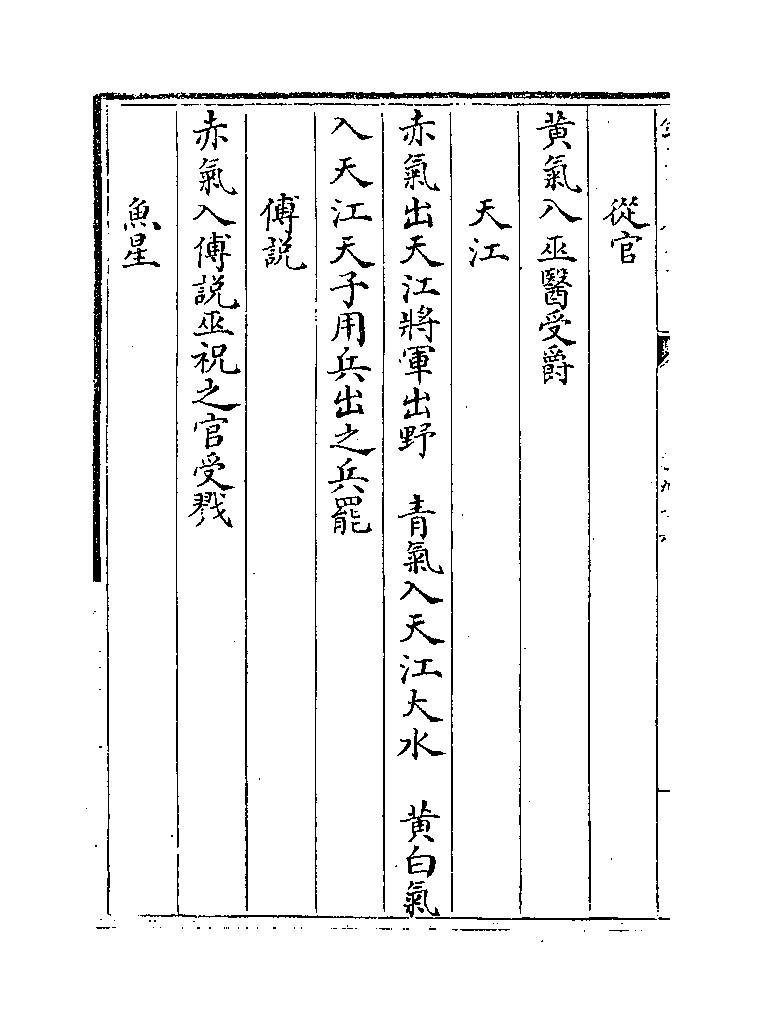 從官
黄氣入巫醫受爵
天江
赤氣出天江將軍出野　青氣入天江大水　黄白氣
入天江天子用兵出之兵罷
傅説
赤氣入傅説巫祝之官受戮
魚星